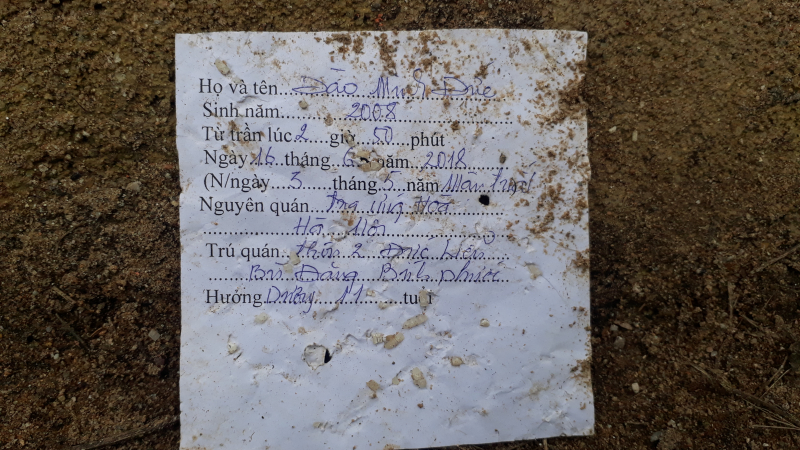 Họ và tên....Đào Minh Đức
Sinh năm............2008............................
Từ trần lúc 2...giờ..50...phút
Ngày 16.tháng..6..năm..2018........
(N/ngày...3......tháng.5..năm Mậu Tuất
Nguyên quán...Ứng Hoà..........
...................Hà Nội.........................
Trú quán..thôn 2 Đức Liễu
.......Bù Đăng Bình Phước
Hưởng.Dương...11........tuổi